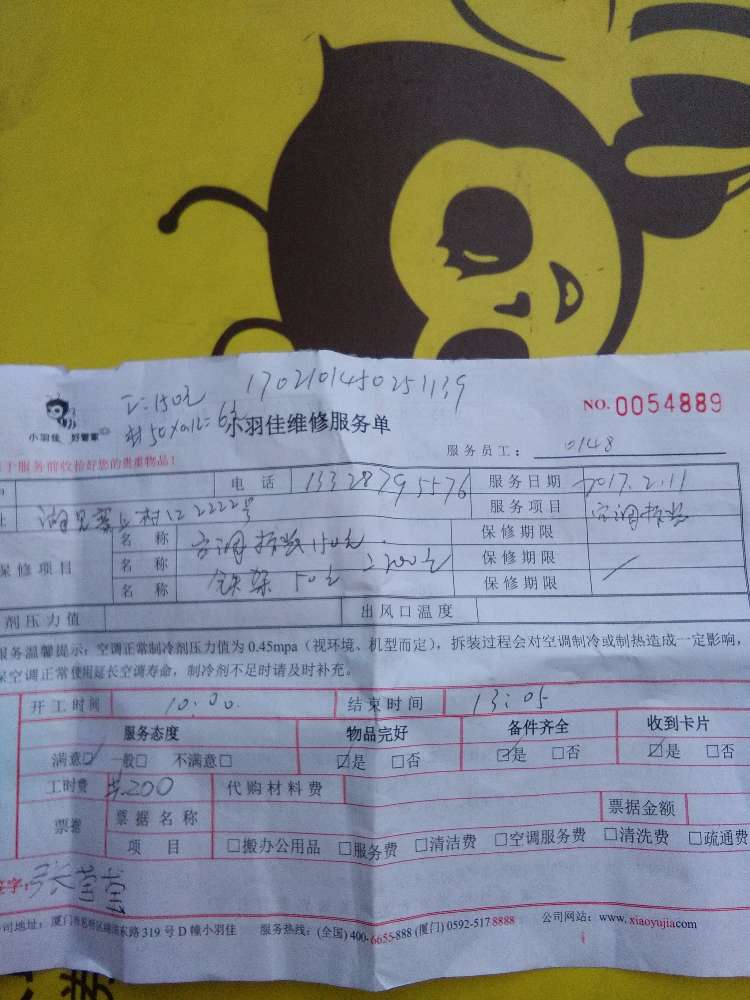 1702101450251139
工:150元
NO. 0054889
小羽佳 好管家
小羽佳维修服务单
服务员工: 0148
于服务前收拾好您的贵重物品!
电 话 13328795576 服务日期 2017.2.11
村 2222号 服务项目 空调拆装
名 称 空调拆装150元 保修期限
保修项目 名 称 铁架 50元 =200元 保修期限
名 称 保修期限
剂压力值 出风口温度
服务温馨提示:空调正常制冷剂压力值为 0.45mpa(视环境、机型而定),拆装过程会对空调制冷或制热造成一定影响,
保空调正常使用延长空调寿命,制冷剂不足时请及时补充。
开工时间 10:00 结束时间 13:05
服务态度 物品完好 备件齐全 收到卡片
满意☑ 一般□ 不满意□ ☑是 □否 ☑是 □否 ☑是 □否
工时费 ¥200 代购材料费
票据 票据名称 票据金额
项 目 □搬办公用品 □服务费 □清洁费 □空调服务费 □清洗费 □疏通费
签字:
司地址: 东路 319 号 D 幢小羽佳 服务热线:(全国) 400-6655-888 (厦门) 0592-517 8888 公司网站:www.xiaoyujia.com